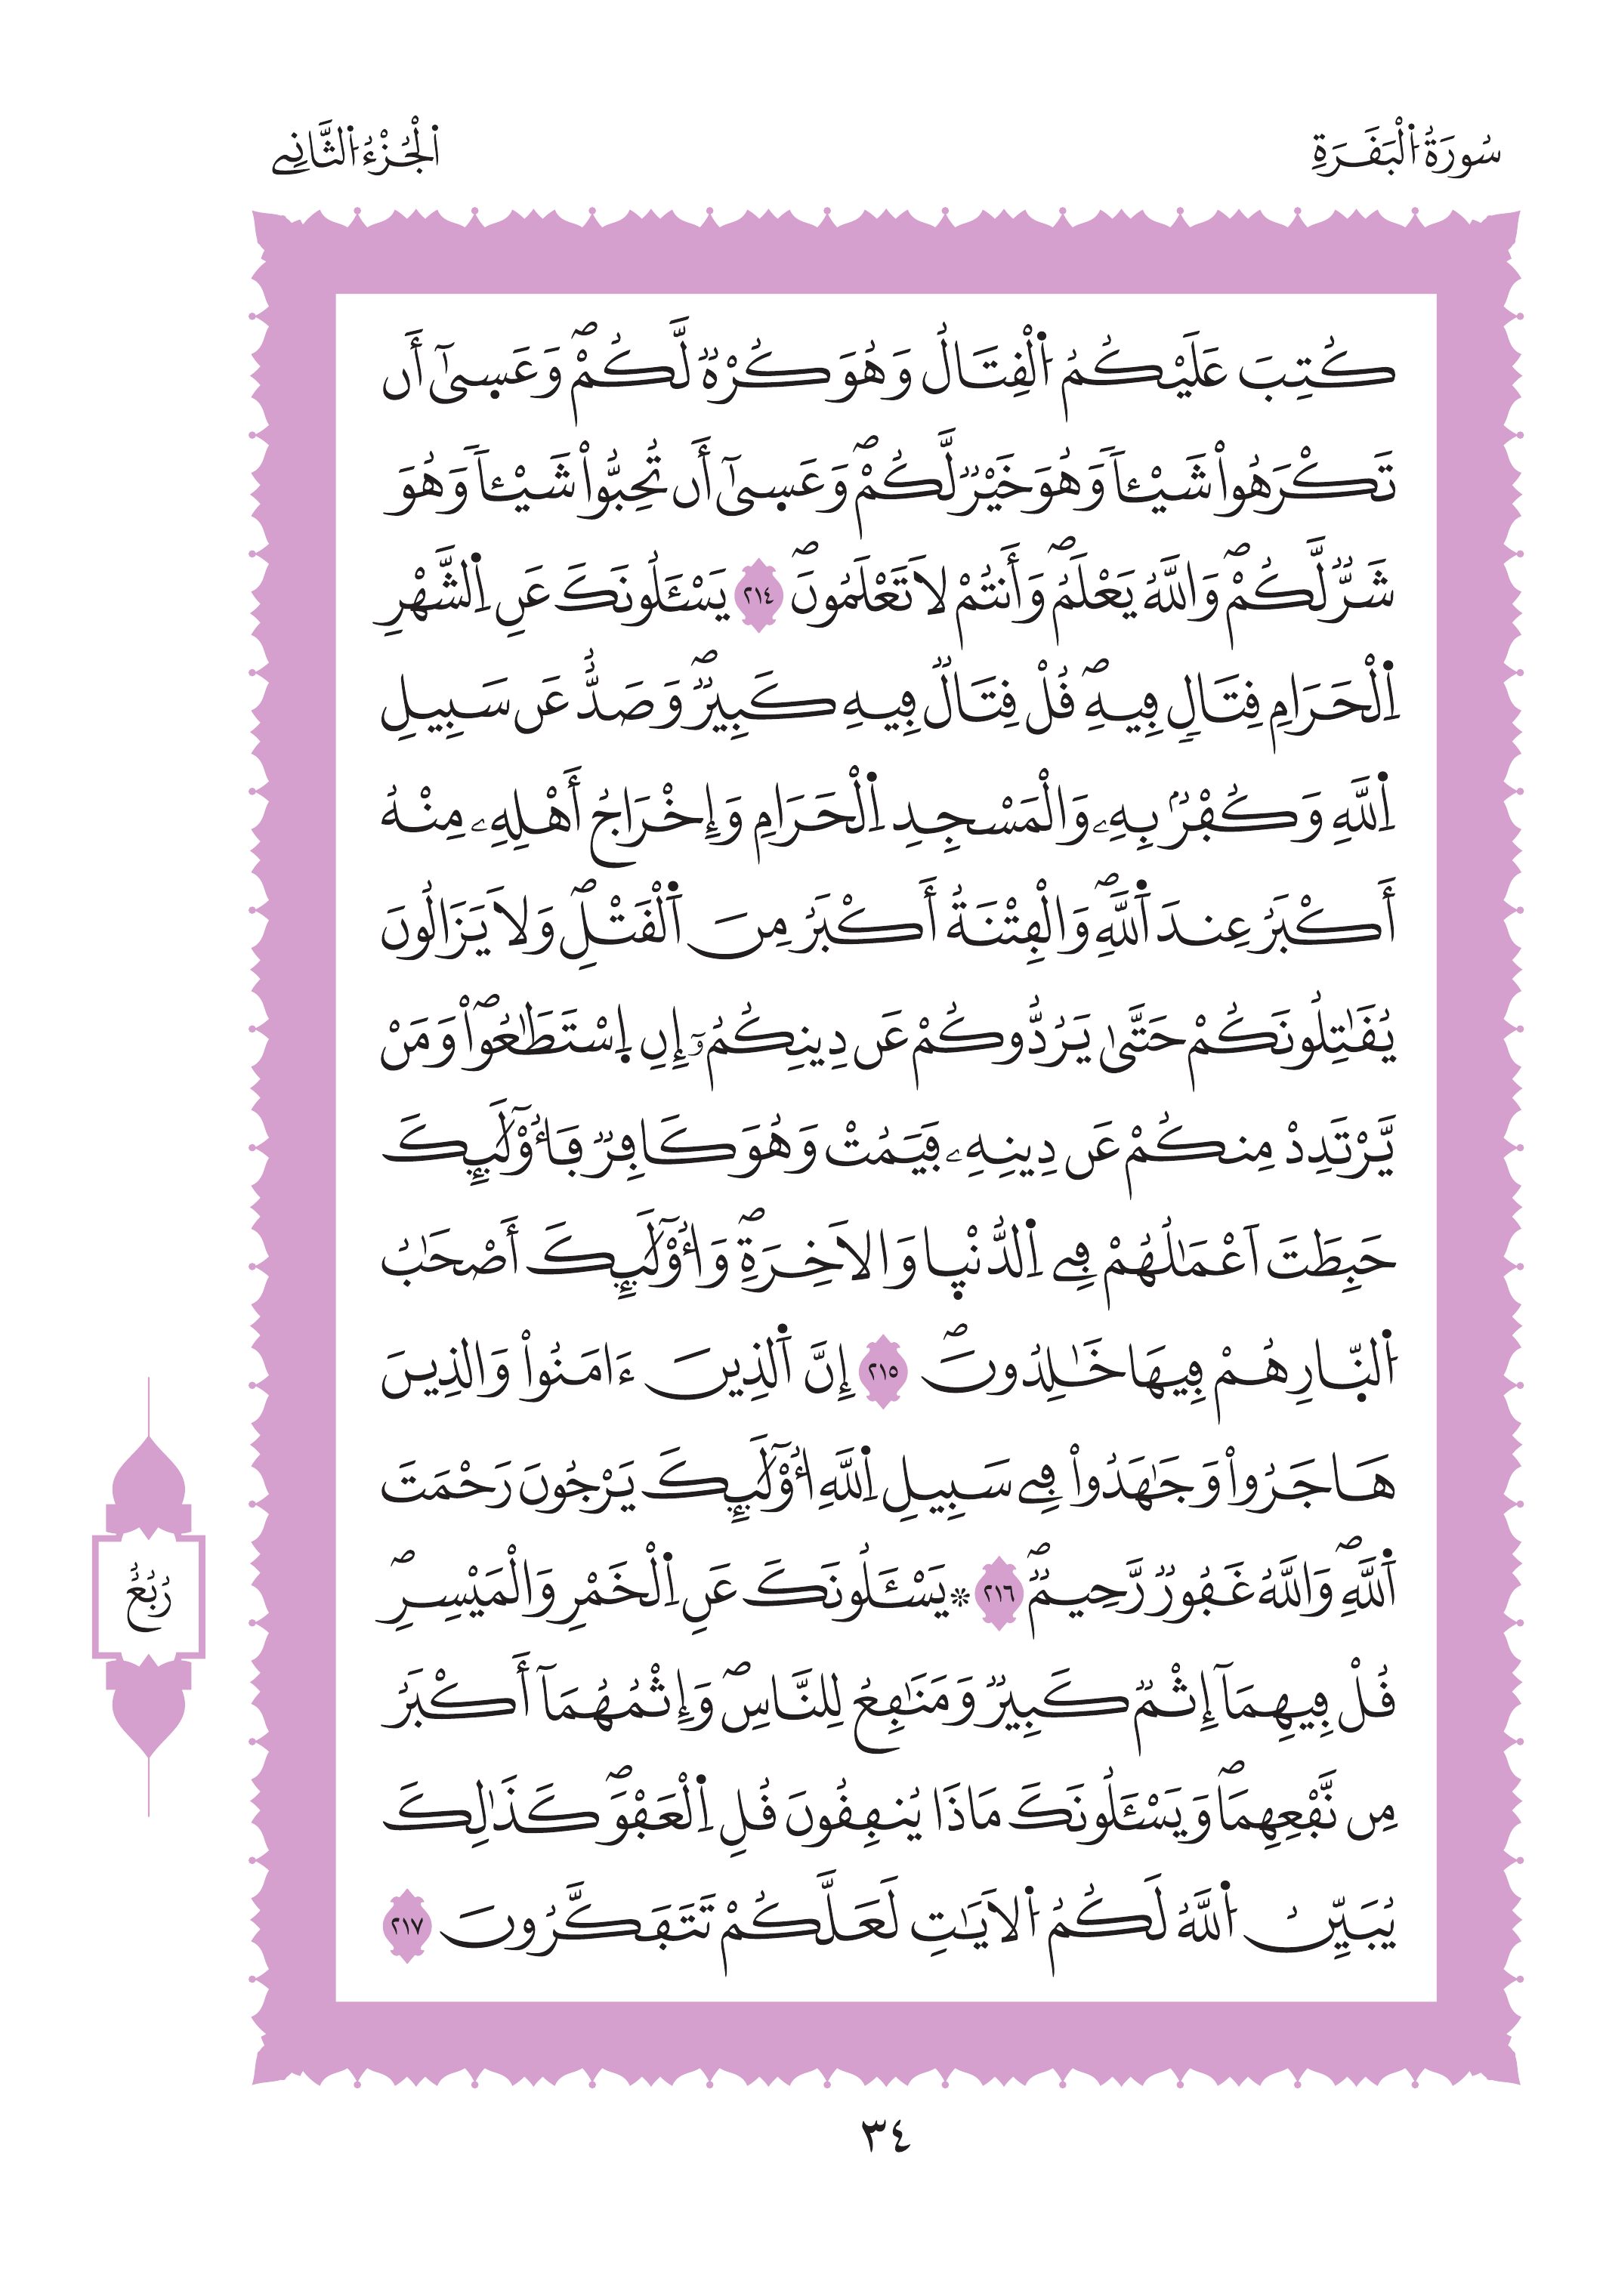 سُورَةُ اُ۬لْبَقَرَةِ
اُ۬لْجُزْءُ اُ۬لثَّانِے
كُتِبَ عَلَيْكُمُ اُ۬لْقِتَالُ وَهُوَ كُرْهٞ لَّكُمْۖ وَعَس۪ىٰٓ أَن
تَكْرَهُواْ شَيْـٔاٗ وَهُوَ خَيْرٞ لَّكُمْۖ وَعَس۪ىٰٓ أَن تُحِبُّواْ شَيْـٔاٗ وَهُوَ
شَرّٞ لَّكُمْۖ وَاللَّهُ يَعْلَمُۖ وَأَنتُمْ لَا تَعْلَمُونَۖ ٢١٤ يَسْـَٔلُونَكَ عَنِ اِ۬لشَّهْرِ
اِ۬لْحَرَامِ قِتَالٖ فِيهِۖ قُلْ قِتَالٞ فِيهِ كَبِيرٞۖ وَصَدٌّ عَن سَبِيلِ
اِ۬للَّهِ وَكُفْرُۢ بِهِۦ وَالْمَسْجِدِ اِ۬لْحَرَامِ وَإِخْرَاجُ أَهْلِهِۦ مِنْهُ
أَكْبَرُ عِندَ اَ۬للَّهِۖ وَالْفِتْنَةُ أَكْبَرُ مِنَ اَ۬لْقَتْلِۖ وَلَا يَزَالُونَ
يُقَٰتِلُونَكُمْ حَتَّىٰ يَرُدُّوكُمْ عَن دِينِكُمُۥٓ إِنِ اِ۪سْتَطَٰعُواْۖ وَمَنْ
يَّرْتَدِدْ مِنكُمْ عَن دِينِهِۦ فَيَمُتْ وَهُوَ كَافِرٞ فَأُوْلَٰٓئِكَ
حَبِطَتَ اَعْمَٰلُهُمْ فِے اِ۬لدُّنْي۪ا وَالَاخِرَةِۖ وَأُوْلَٰٓئِكَ أَصْحَٰبُ
اُ۬لنّ۪ارِ هُمْ فِيهَا خَٰلِدُونَۖ ٢١٥ إِنَّ اَ۬لذِينَ ءَامَنُواْ وَالذِينَ
هَاجَرُواْ وَجَٰهَدُواْ فِے سَبِيلِ اِ۬للَّهِ أُوْلَٰٓئِكَ يَرْجُونَ رَحْمَتَ
اَ۬للَّهِۖ وَاللَّهُ غَفُورٞ رَّحِيمٞۖ ٢١٦ ۞ يَسْـَٔلُونَكَ عَنِ اِ۬لْخَمْرِ وَالْمَيْسِرِۖ
رُبُعُ
قُلْ فِيهِمَآ إِثْمٞ كَبِيرٞ وَمَنَٰفِعُ لِلنَّاسِۖ وَإِثْمُهُمَآ أَكْبَرُ
مِن نَّفْعِهِمَاۖ وَيَسْـَٔلُونَكَ مَاذَا يُنفِقُونَ قُلِ اِ۬لْعَفْوَۖ كَذَٰلِكَ
يُبَيِّنُ اُ۬للَّهُ لَكُمُ اُ۬لَايَٰتِ لَعَلَّكُمْ تَتَفَكَّرُونَ ٢١٧
٣٤